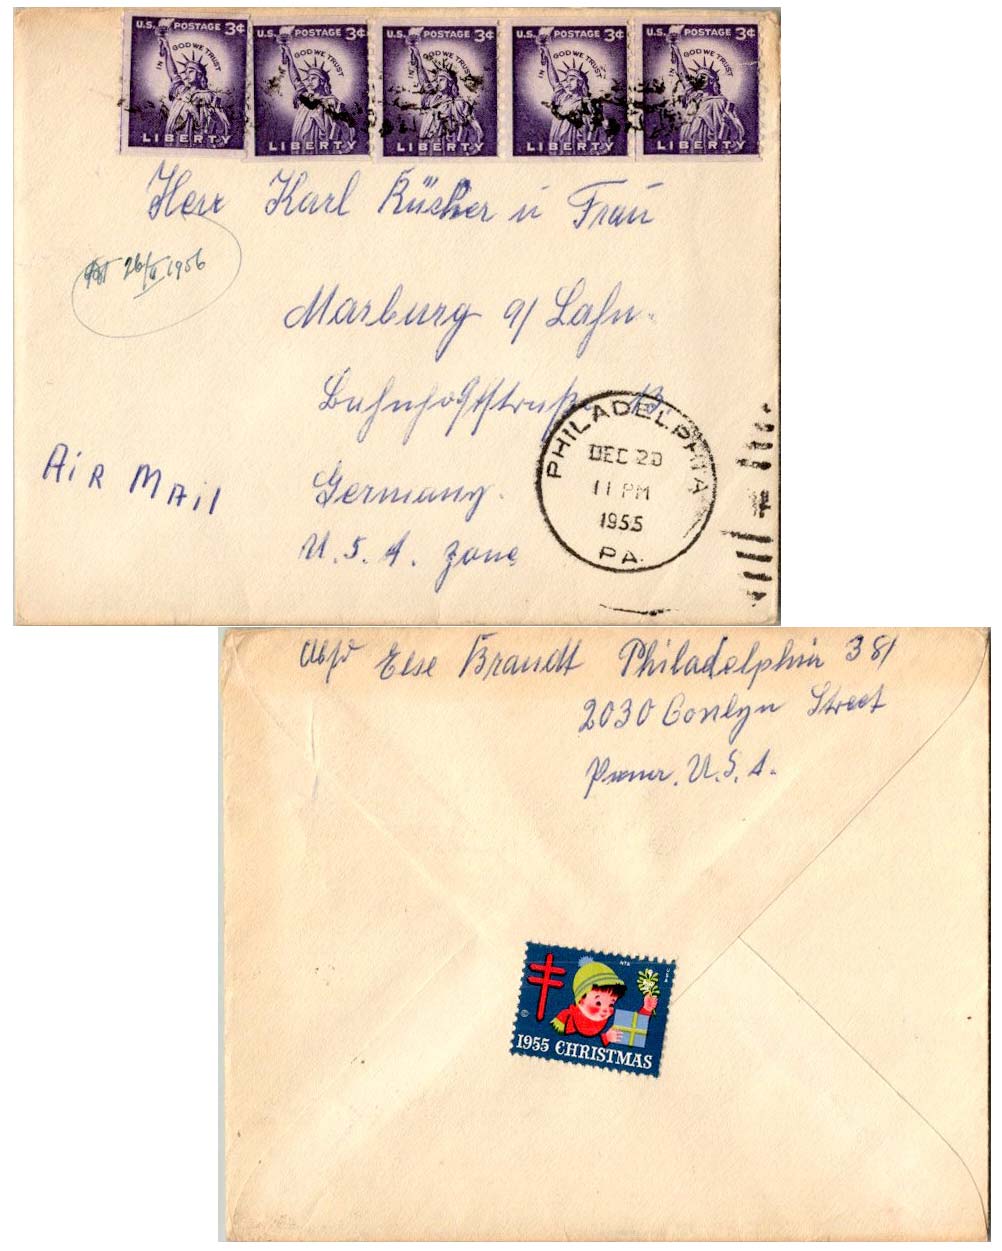 U.S. POSTAGE 3¢ U.S. POSTAGE 3¢ U.S. POSTAGE 3¢ U.S. POSTAGE 3¢ U.S. POSTAGE 3¢
IN GOD WE TRUST IN GOD WE TRUST IN GOD WE TRUST IN GOD WE TRUST IN GOD WE TRUST
LIBERTY LIBERTY LIBERTY LIBERTY LIBERTY
Herr Karl Rücker u Frau
26/II 1956
Marburg a/ Lahn.
Bahnhofstraße 13.
AiR MAil
Germany.
U.S.A. zone
PHILADELPHIA
DEC 20
11 PM
1955
PA.
Abs Else Brandt Philadelphia 38/
2030 Conlyn Street
U.S.A.
NTA USA
©
1955 CHRISTMAS